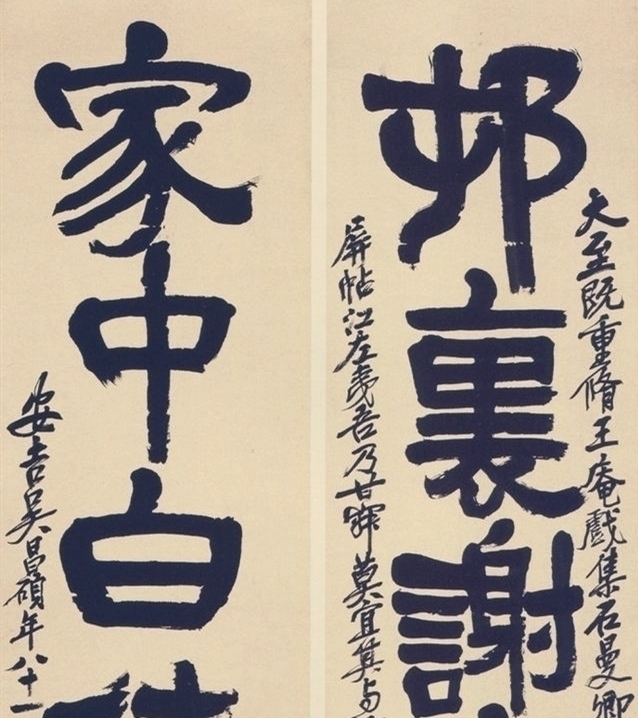 大至既重脩王庵戲集石曼卿
邨裏謝
屏帖江左夷吾乃甘
莫宜其与
家中白
安吉吳昌碩年八十一